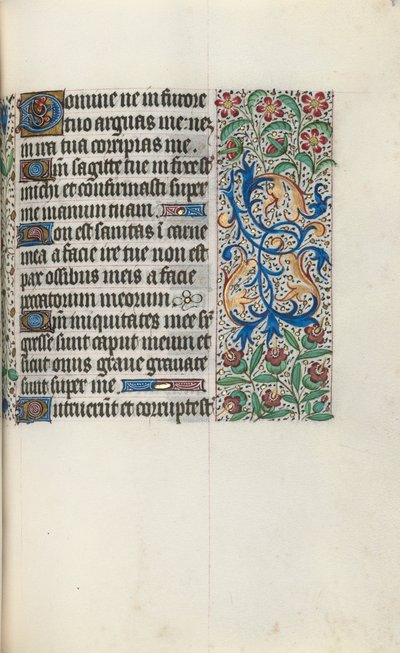 Domine ne in furore
tuo arguas me: neq
in ira tua corripias me.
Qm̄ sagitte tue infixe st̄
michi et confirmasti super
me manum tuam
Non est sanitas ī carne
mea a facie ire tue non est
pax ossibus meis a facie
peccatorum meorum
Qm̄ iniquitates mee sup̄
gresse sunt caput meum et
sicut onus graue grauate
sunt super me
Putruerūt et corrupte st̄